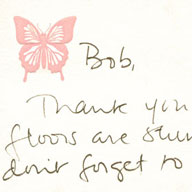 Bob,
Thank you
floors are
don't forget to